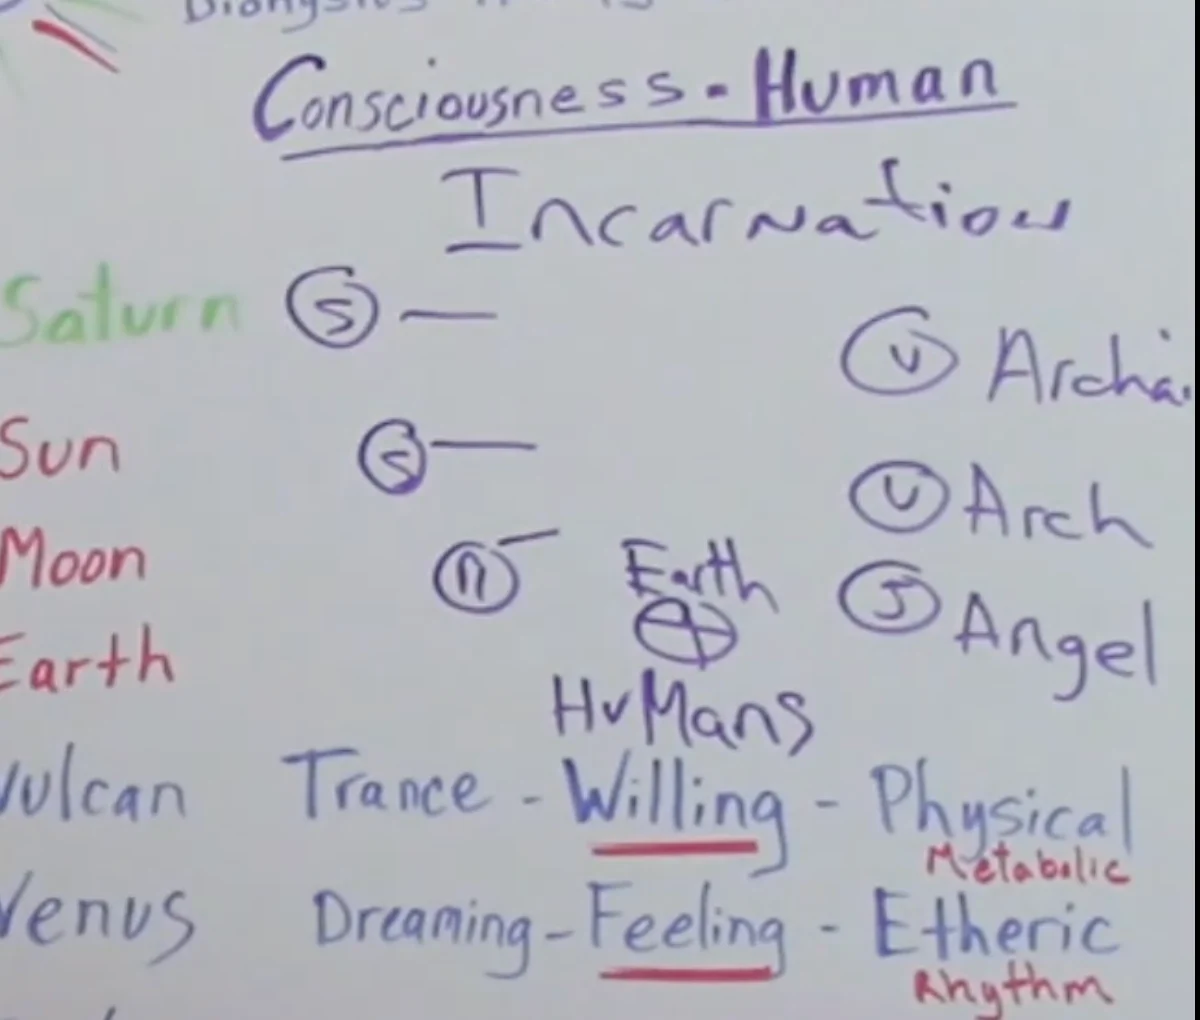 Dionysius
Consciousness - Human
Incarnation
Saturn Ⓢ —
Ⓥ Archai
Sun Ⓢ —
Ⓥ Arch
Moon ⓜ — Earth Ⓙ Angel
Earth
HuMans
Vulcan Trance - Willing - Physical
Metabolic
Venus Dreaming - Feeling - Etheric
Rhythm